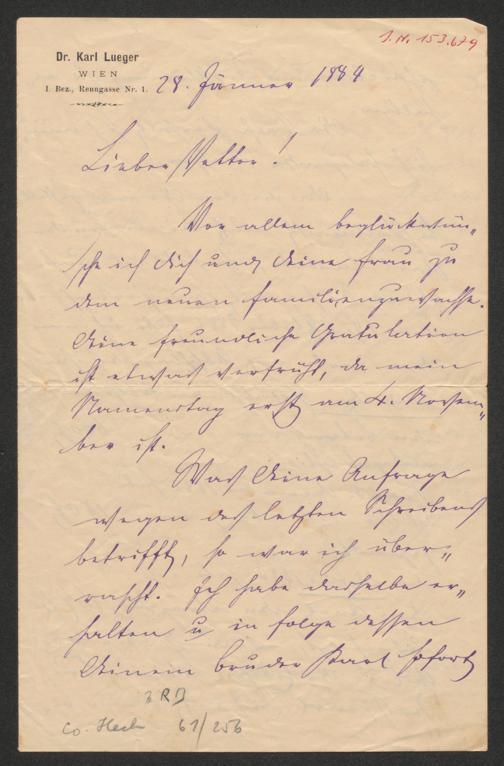 J. N. 153.679
Dr. Karl Lueger
WIEN
I. Bez., Renngasse Nr. 1.
28. Jänner 1884
Lieber Vetter!
Vor allem beglückwün„
sche ich dich und deine Frau zu
dem neuen Familienzuwachse.
Deine freundliche Gratulation
ist etwas verfrüht, da mein
Namenstag erst am 4. Novem„
ber ist.
Was Deine Anfrage
wegen des letzten Schreibens
betrifft, so war ich über„
rascht. Ich habe dasselbe er„
halten u in folge dessen
Deinem Bruder Karl sofort
RD
Co. 61/256